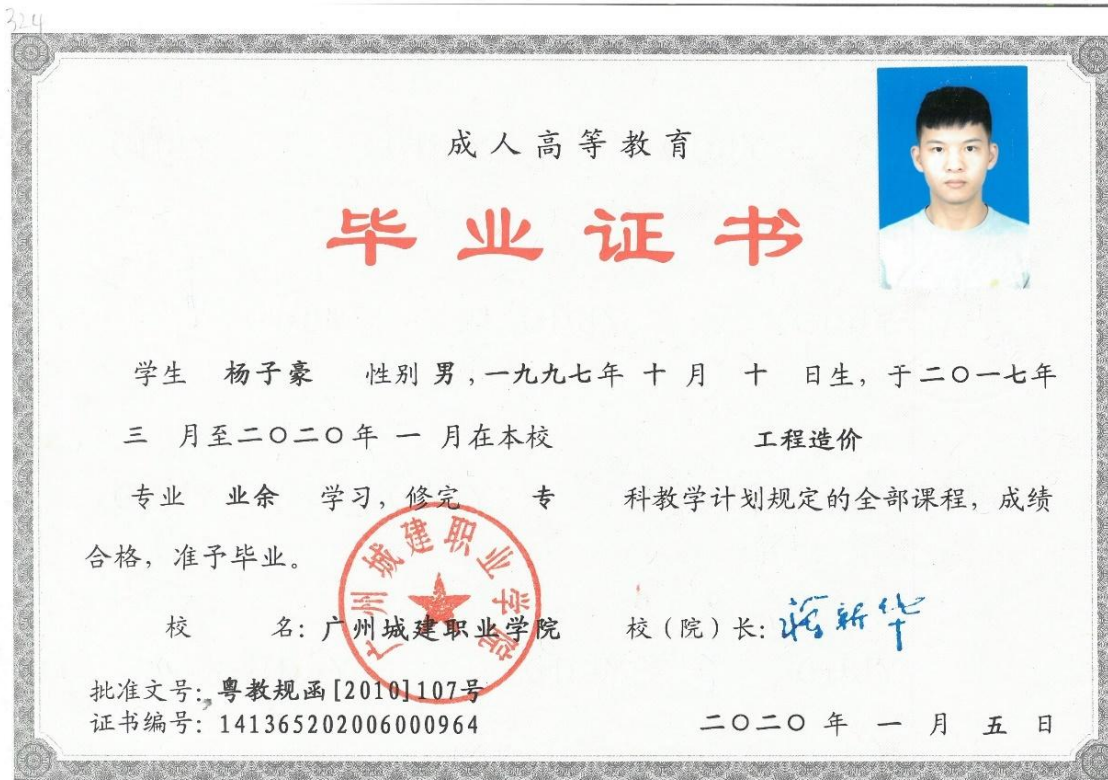 324
成人高等教育
毕业证书
学生 杨子豪 性别 男，一九九七年 十 月 十 日生，于二〇一七年
三 月至二〇二〇年 一 月在本校 工程造价
专业 业余 学习，修完 专 科教学计划规定的全部课程，成绩
合格，准予毕业。
广州城建职业学院
校 名：广州城建职业学院 校（院）长：蒋新华
批准文号：粤教规函[2010]107号
证书编号：141365202006000964 二〇二〇 年 一 月 五 日